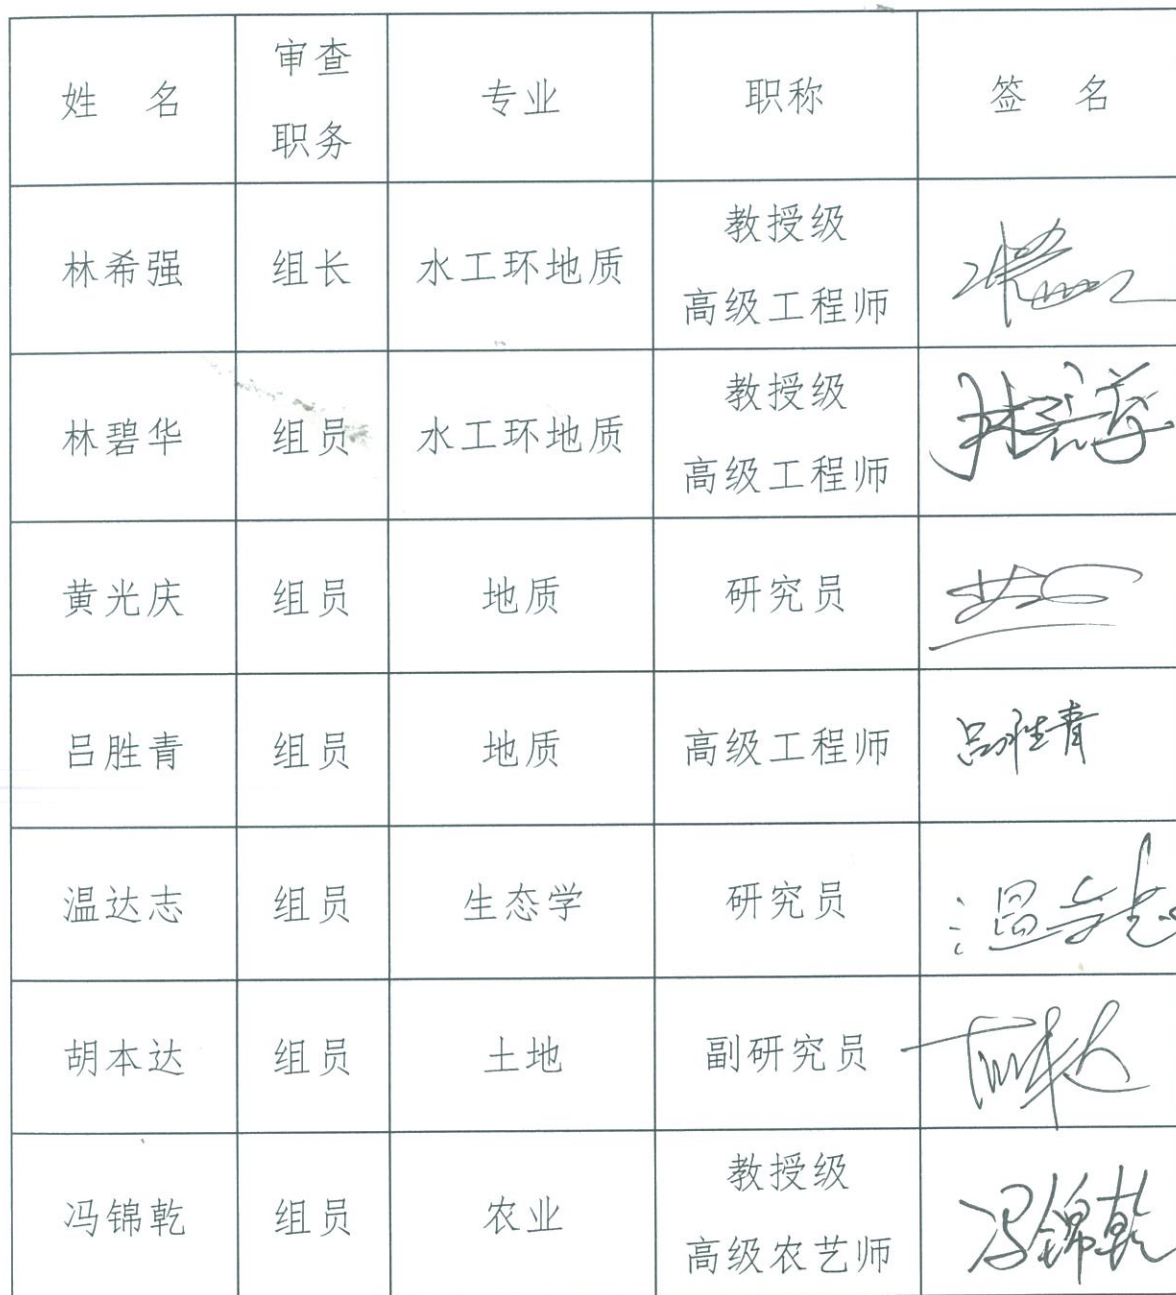 姓 名 审查职务 专业 职称 签 名
林希强 组长 水工环地质 教授级高级工程师
林碧华 组员 水工环地质 教授级高级工程师 林碧华
黄光庆 组员 地质 研究员
吕胜青 组员 地质 高级工程师 吕胜青
温达志 组员 生态学 研究员 温达志
胡本达 组员 土地 副研究员 胡本达
冯锦乾 组员 农业 教授级高级农艺师 冯锦乾